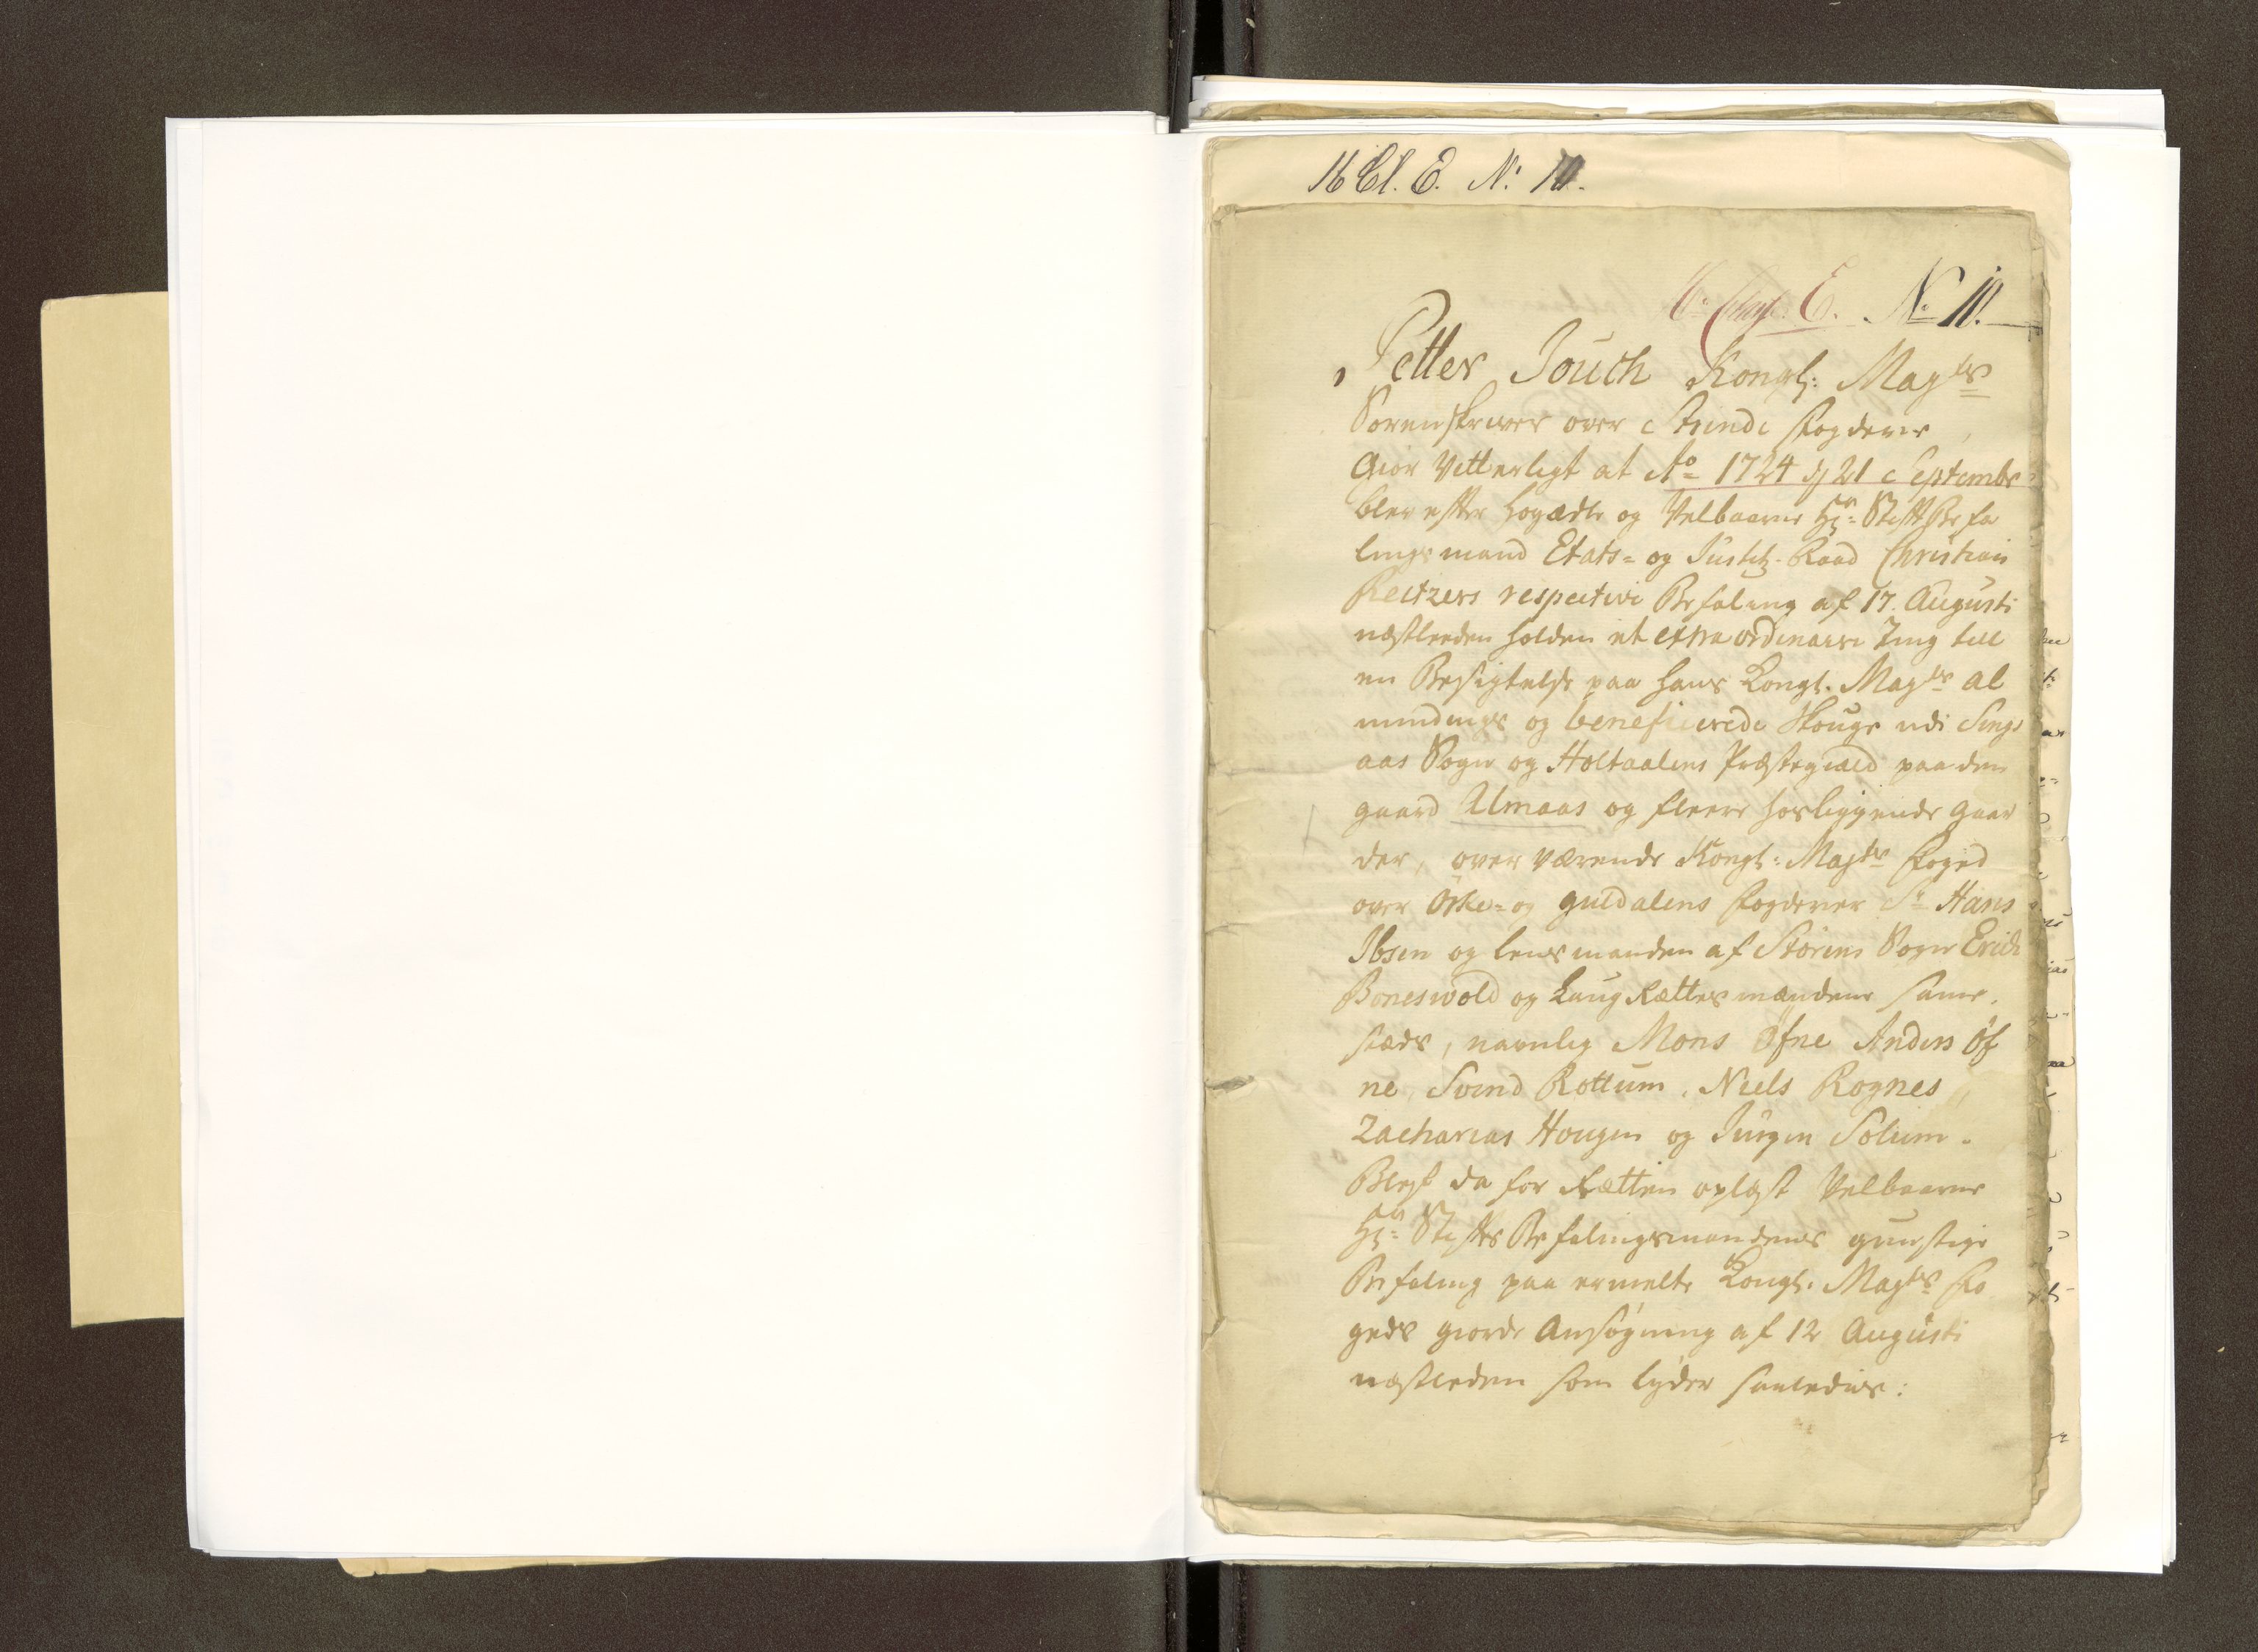 16 Cl. E. N: 10.
Class. E. N: 10.
Petter Jouch Kongl: Mayts
Sorenskriver over Strinde Fogderie
Giør Vitterligt at Ao 1724 dj 21 Septembr
blev efter Høyædle og Velbaarne Hr: Stiftbefa
lingsmand Etats- og Justitz-Raad Christian
Reitzers respective Befaling af 17. Augusti
næstleeden holden et extraordinaire Ting till
en Besigtelse paa hans Kongl. Mayts al
mindings og beneficerede Skouge udi Sings
aas Sogn og Holtaalens Præstegield paa den
gaard Almaas og fleere hosliggende gaar
der, overværende Kongl: Mayts Foged
over Ørke- og Guldalens Fogderier Sr Hans
Ibsen og lensmanden af Størens Sogn Erich
Boneswold og Laug Rættesmændene samme
stæds, navnlig Mons Øfne Anders Øf
ne, Svend Rottum, Niels Rognes,
Zacharias Hougen og Jørgen Solum.
Blef da for Rætten oplæst Velbaarne
Hr: Stiftsbefalingsmandens gunstige
Befaling paa ermelte Kongl. Mayts Fo
geds giorde Ansøgning af 12 Augusti
næstleden som lyder saaledis: